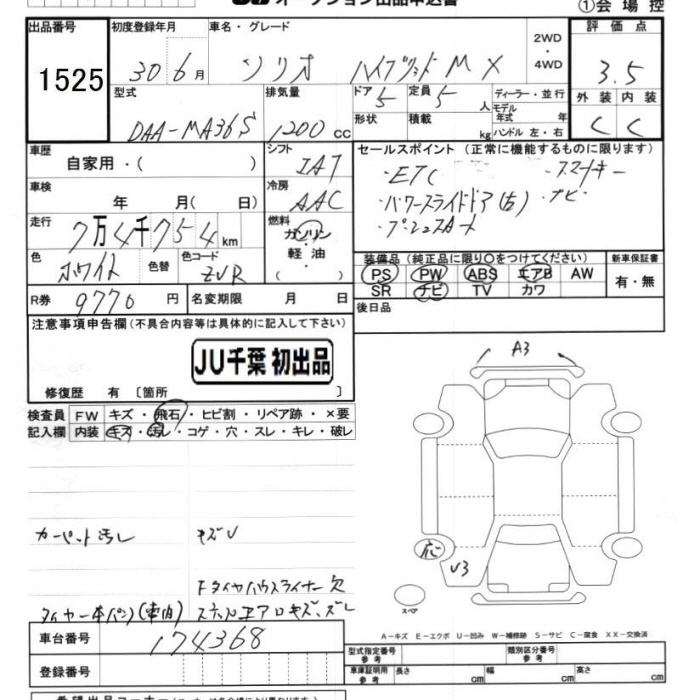 オークション出品申込書
①会場控
出品番号 1525
初度登録年月 30年 6月
車名・グレード ソリオ ハイブリッド MX
2WD・4WD
評価点 3.5
外装 C 内装 C
型式 DAA-MA36S
排気量 1200 cc
ドア 5 定員 5 人
形状 積載 kg
ディーラー・並行
モデル年式 年
ハンドル 左・右
車歴 自家用・( )
シフト IAT
冷房 AAC
車検 年 月( 日)
走行 7万4千754km
燃料 ガソリン・軽油・( )
色 ホワイト 色替 色コード ZVR
R券 9770円 名変期限 月 日
セールスポイント (正常に機能するものに限ります)
・ETC ・スマートキー
・パワースライドドア(左) ・ナビ
・プッシュスタート
装備品 (純正品に限り○をつけてください)
PS PW ABS エアB AW
SR ナビ TV カワ
新車保証書 有・無
後日品
注意事項申告欄 (不具合内容等は具体的に記入して下さい)
JU千葉 初出品
修復歴 有 〔箇所 〕
検査員記入欄
FW キズ・飛石・ヒビ割・リペア跡・×要
内装 キズ・汚レ・コゲ・穴・スレ・キレ・破レ
カーペット汚レ キズU
Fタイヤハウスライナー欠
タイヤ一本パンク(車内) ステップエアロキズ、ズレ
A3
U3
スペア
A-キズ E-エクボ U-凹み W-補修跡 S-サビ C-腐食 XX-交換済
車台番号 174368
登録番号
型式指定番号 参考
類別区分番号 参考
車庫証明用 参考 長さ cm 幅 cm 高さ cm